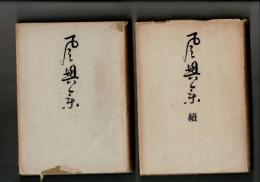 風興集
風興集
續